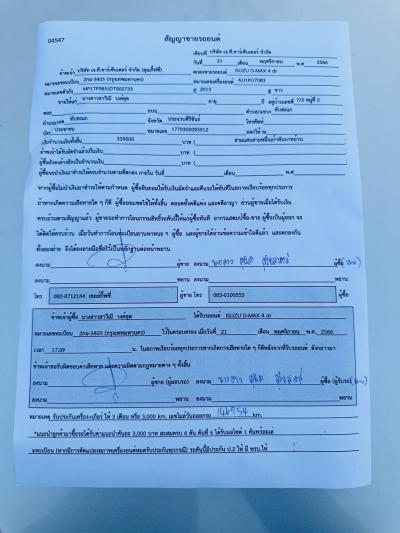 04547
สัญญาขายรถยนต์
เขียนที่ บริษัท เจ.ที.คาร์เซ็นเตอร์ จำกัด
วันที่ 21 เดือน พฤศจิกายน พ.ศ. 2566
ข้าพเจ้า บริษัท เจ.ที.คาร์เซ็นเตอร์ จำกัด ตกลงขายรถยนต์ ISUZU D-MAX 4 dr
หมายเลขทะเบียน 2กจ-3405 (กรุงเทพมหานคร) หมายเลขเครื่อง 4JJ1KU7083
หมายเลขตัวถัง MP1TFR85JDT002733 ปี 2013 สี ขาว
ขายให้แก่ อายุ ปี อยู่บ้านเลขที่ 7/2 หมู่ที่ 2
ซอย ถนน ตำบล/แขวง ทับสะแก
อำเภอ/เขต ทับสะแก จังหวัด ประจวบคีรีขันธ์ โทรศัพท์
บัตร ประชาชน หมายเลข 1770300095912 ออกให้ ณ
เป็นจำนวนเงินทั้งสิ้น 339000 บาท ( สามแสนสามหมื่นเก้าพันบาทถ้วน )
ข้าพเจ้าได้รับมัดจำแล้วเป็นเงิน บาท ( )
ผู้ซื้อยังคงค้างชำระเป็นจำนวนเงิน บาท ( )
ผู้ซื้อจะนำเงินมาชำระให้ครบจำนวนตามที่ตกลง ภายใน วันที่ เดือน พ.ศ.
หากผู้ซื้อไม่นำเงินมาชำระให้ตามกำหนด ผู้ซื้อยินยอมให้ริบเงินมัดจำและคืนรถให้ทันทีในสภาพเรียบร้อยทุกประการ
ถ้าหากเกิดความเสียหายใด ๆ ก็ดี ผู้ซื้อยอมชดใช้ให้ทั้งสิ้น ตลอดทั้งคดีแพ่ง และคดีอาญา ส่วนผู้ขายเมื่อได้รับเงิน
ครบถ้วนตามสัญญาแล้ว ผู้ขายจะทำการโอนกรรมสิทธิ์รถคันนี้ให้แก่ผู้ซื้อทันที
ทั้งสองฝ่าย จึงได้ลงลายมือชื่อไว้เป็นหลักฐานต่อหน้าพยาน
ลงนาม ผู้ขาย ลงนาม ผู้ซื้อ
ลงนาม พยาน ลงนาม พยาน
โทร 082-8712144 ผู้ขาย โทร 083-0100553 ผู้ซื้อ
ข้าพเจ้าผู้ซื้อ ได้รับรถยนต์ ISUZU D-MAX 4 dr
หมายเลขทะเบียน 2กจ-3405 (กรุงเทพมหานคร) ไว้ในครอบครอง เมื่อวันที่ 21 เดือน พฤศจิกายน พ.ศ. 2566
เวลา 17.09 น. ในสภาพเรียบร้อยทุกประการ
ลงนาม ผู้ขาย (ผู้มอบรถ) ลงนาม ผู้ซื้อ (ผู้รับรถ)
ลงนาม พยาน ลงนาม พยาน
หมายเหตุ รับประกันเครื่อง+เกียร์ ให้ 3 เดือน หรือ 3,000 km. เลขไมล์วันออกรถ 146954 km.